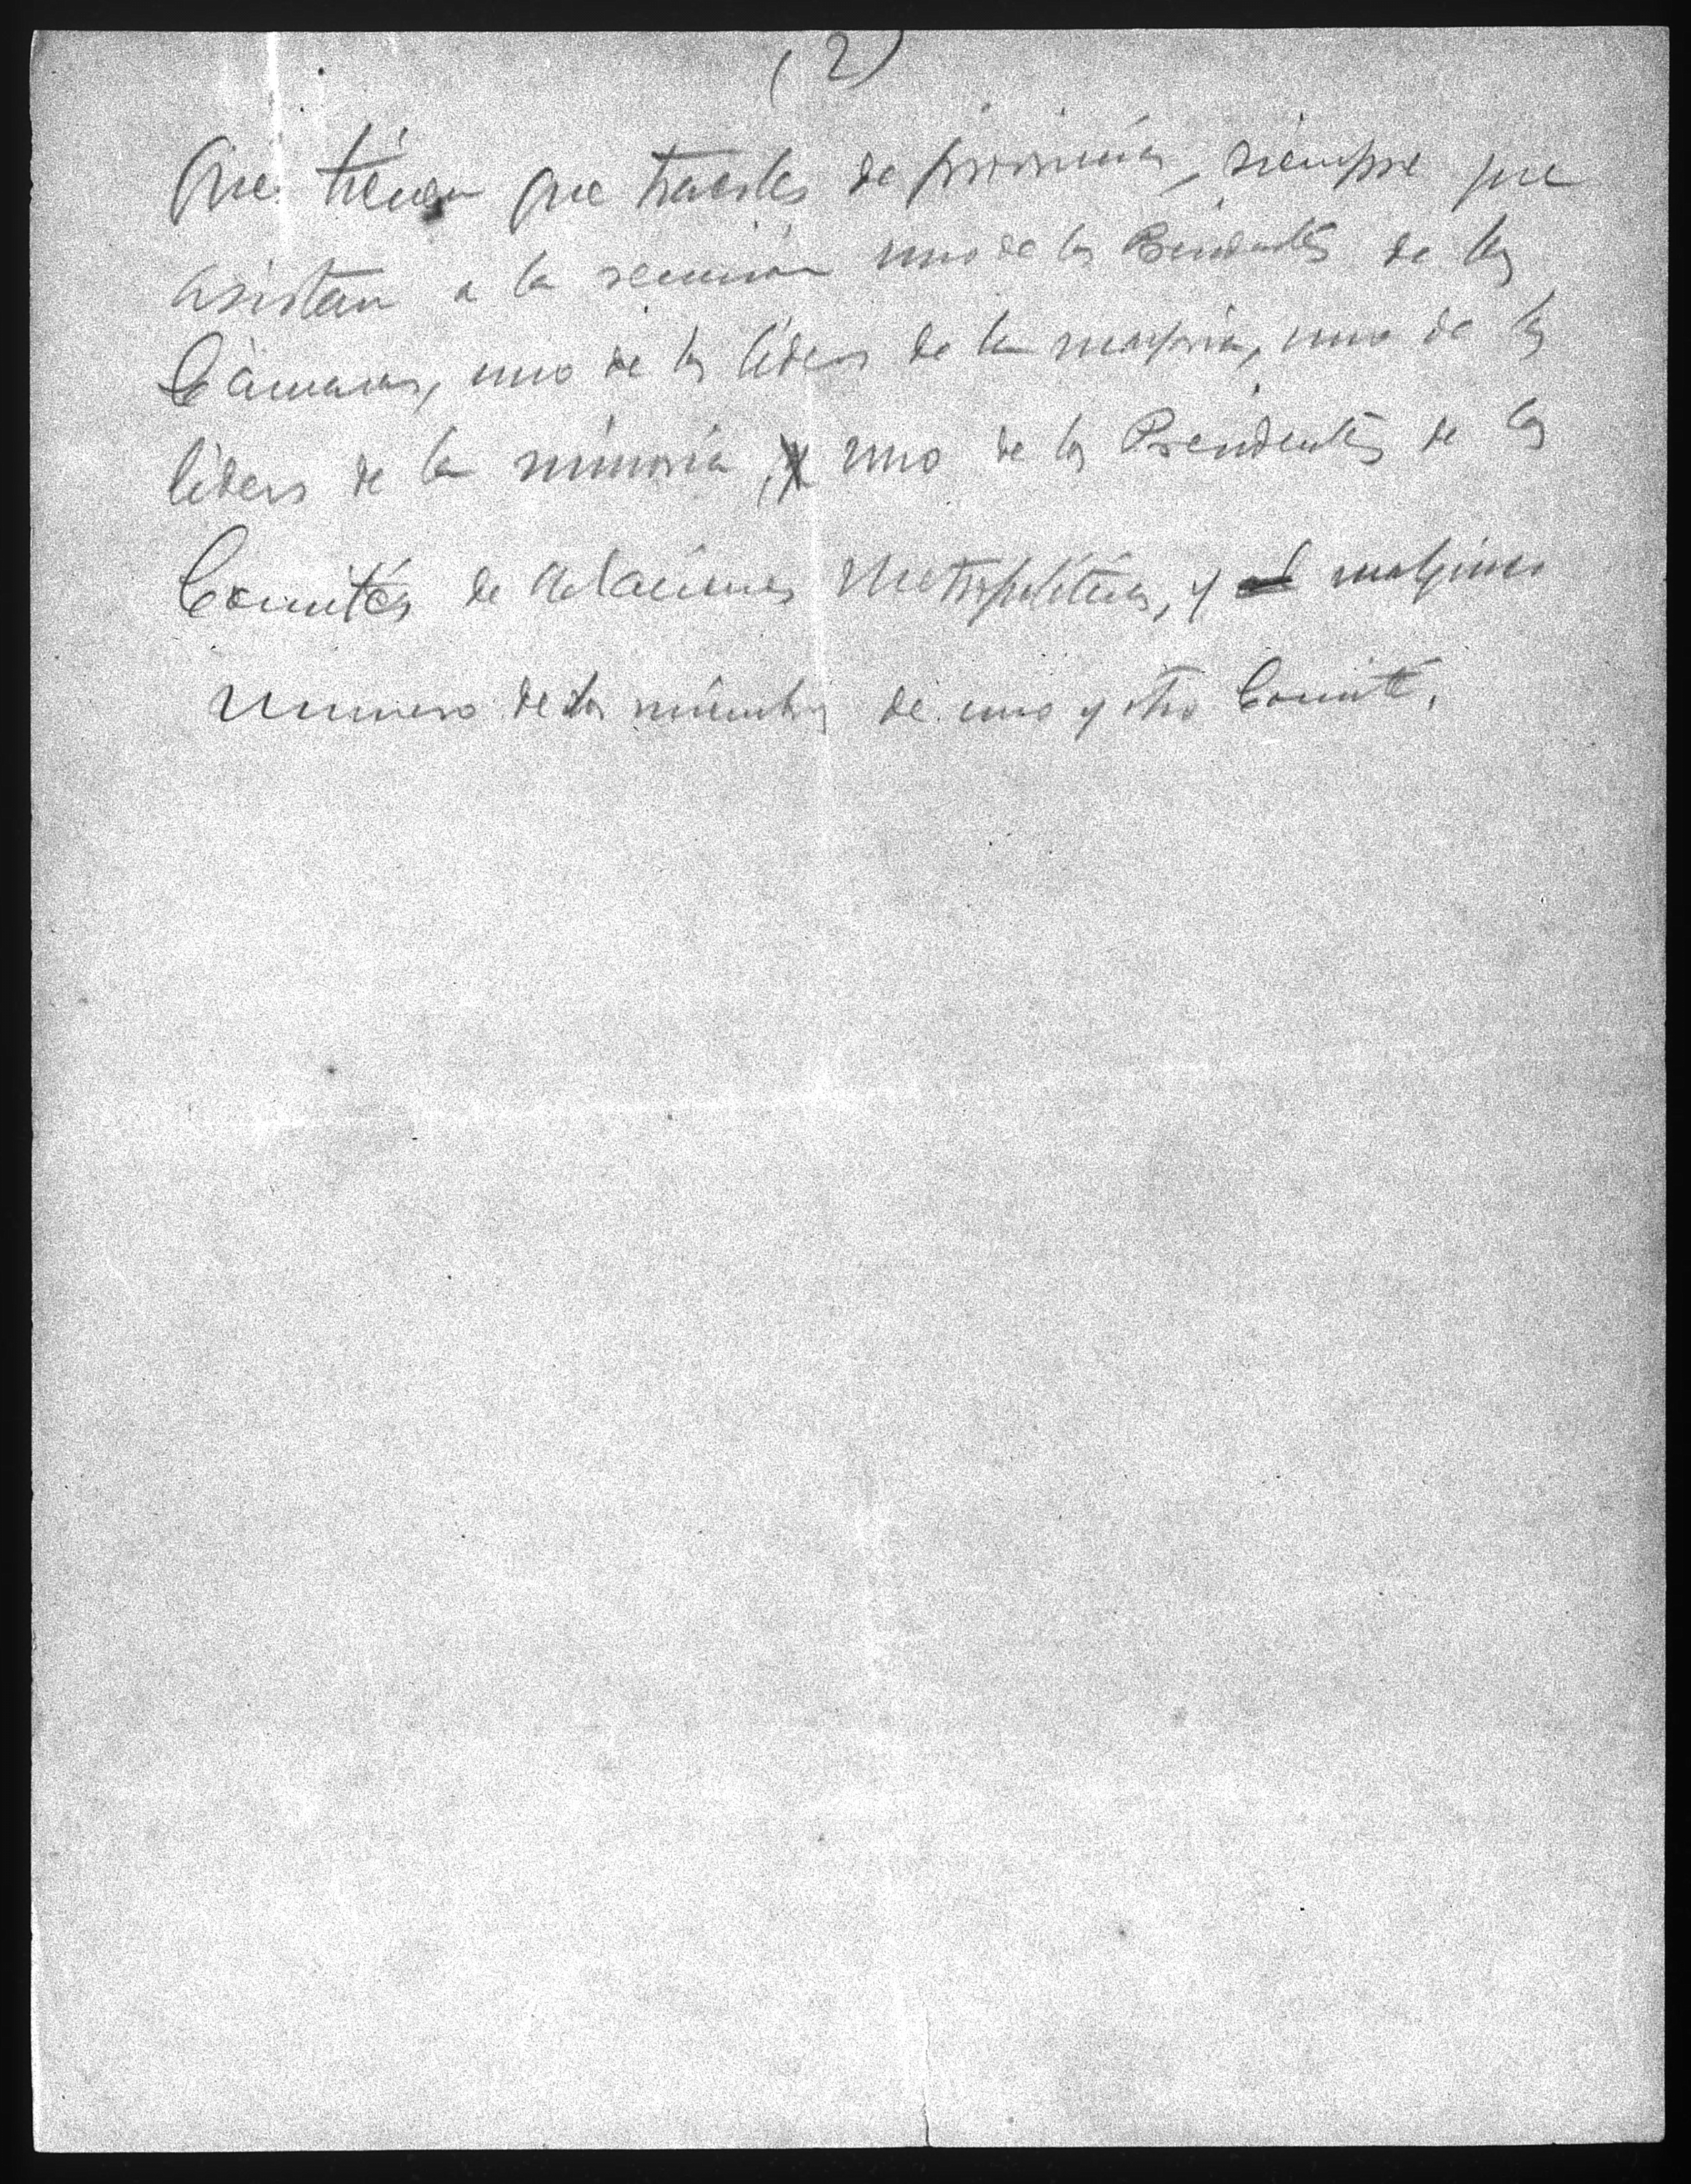 (2)
que tienen que traerles de provincias, siempre que
asistan a la reunión uno de los Presidentes de las
Cámaras, uno de los líderes de la mayoría, uno de los
líderes de la minoría, y uno de los Presidentes de los
Comités de Relaciones Metropolitanas, y cualquier
número de los miembros de uno y otro Comité.